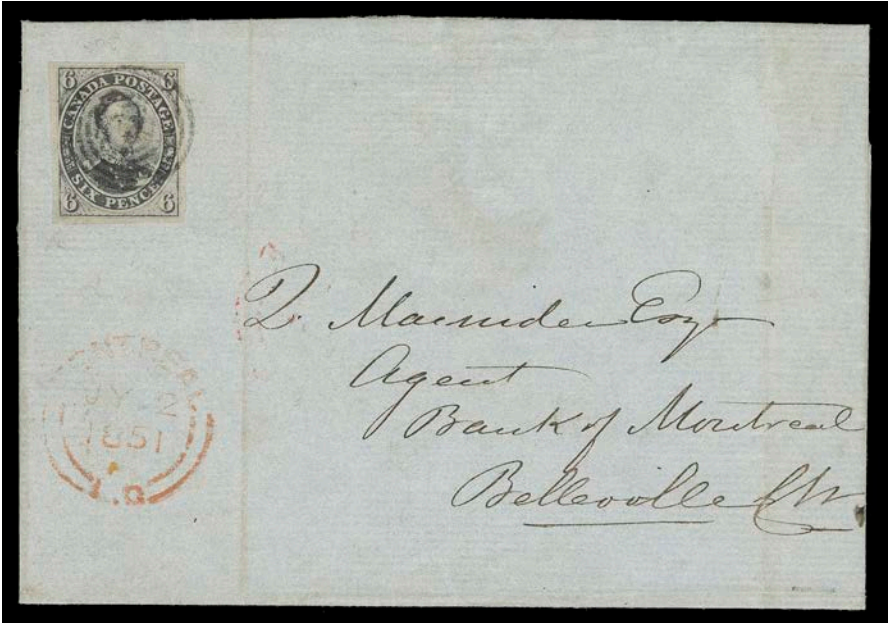 6 CANADA POSTAGE 6
6 SIX PENCE 6
MONTREAL
JY 2
1851
L.C
Q. Macnider Esqr
Agent
Bank of Montreal
Belleville C.W.